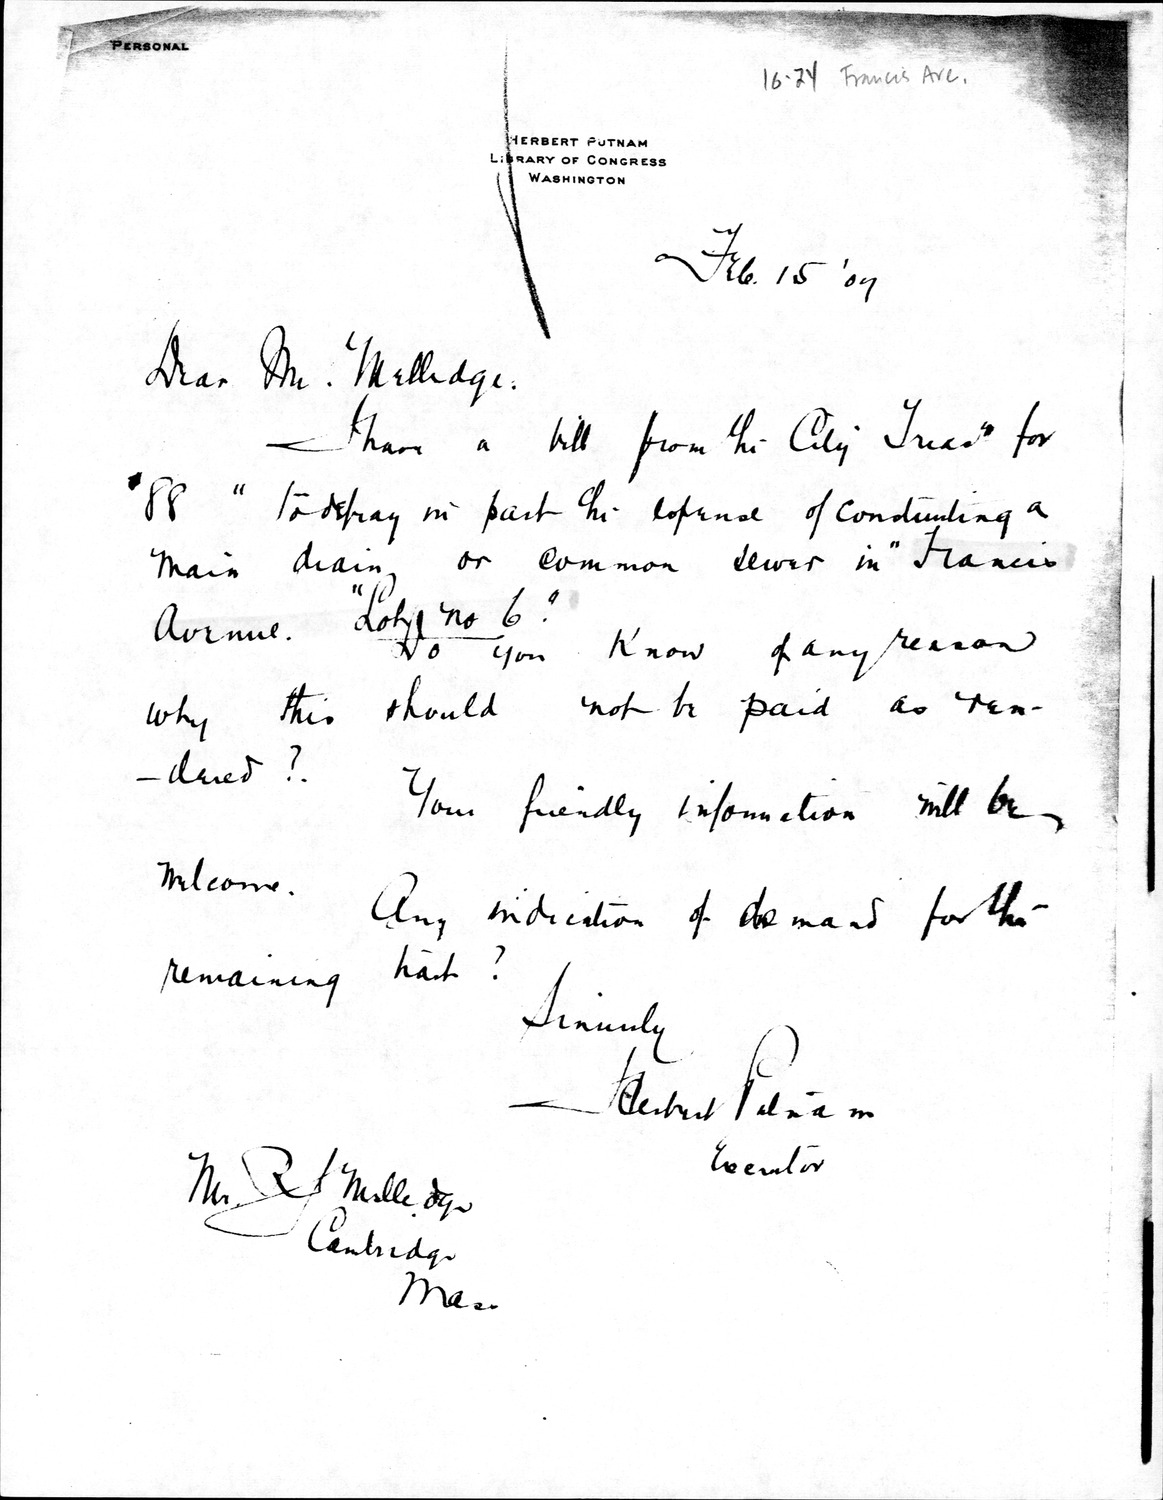 PERSONAL
16-24 Francis Ave.
HERBERT PUTNAM
LIBRARY OF CONGRESS
WASHINGTON
Feb. 15 '07
Dear Mr. Melledge:
I have a bill from the City Treasr for
$88 " to defray in part the expense of constructing a
main drain, or common sewer in" Francis
Avenue. "Lot no 6"
Do you know of any reason
why this should not be paid as ren-
-dered?
Your friendly information will be
welcome.
Any indication of demand for the
remaining tract?
Sincerely
Herbert Putnam
Executor
Mr. R J Melledge
Cambridge
Mass